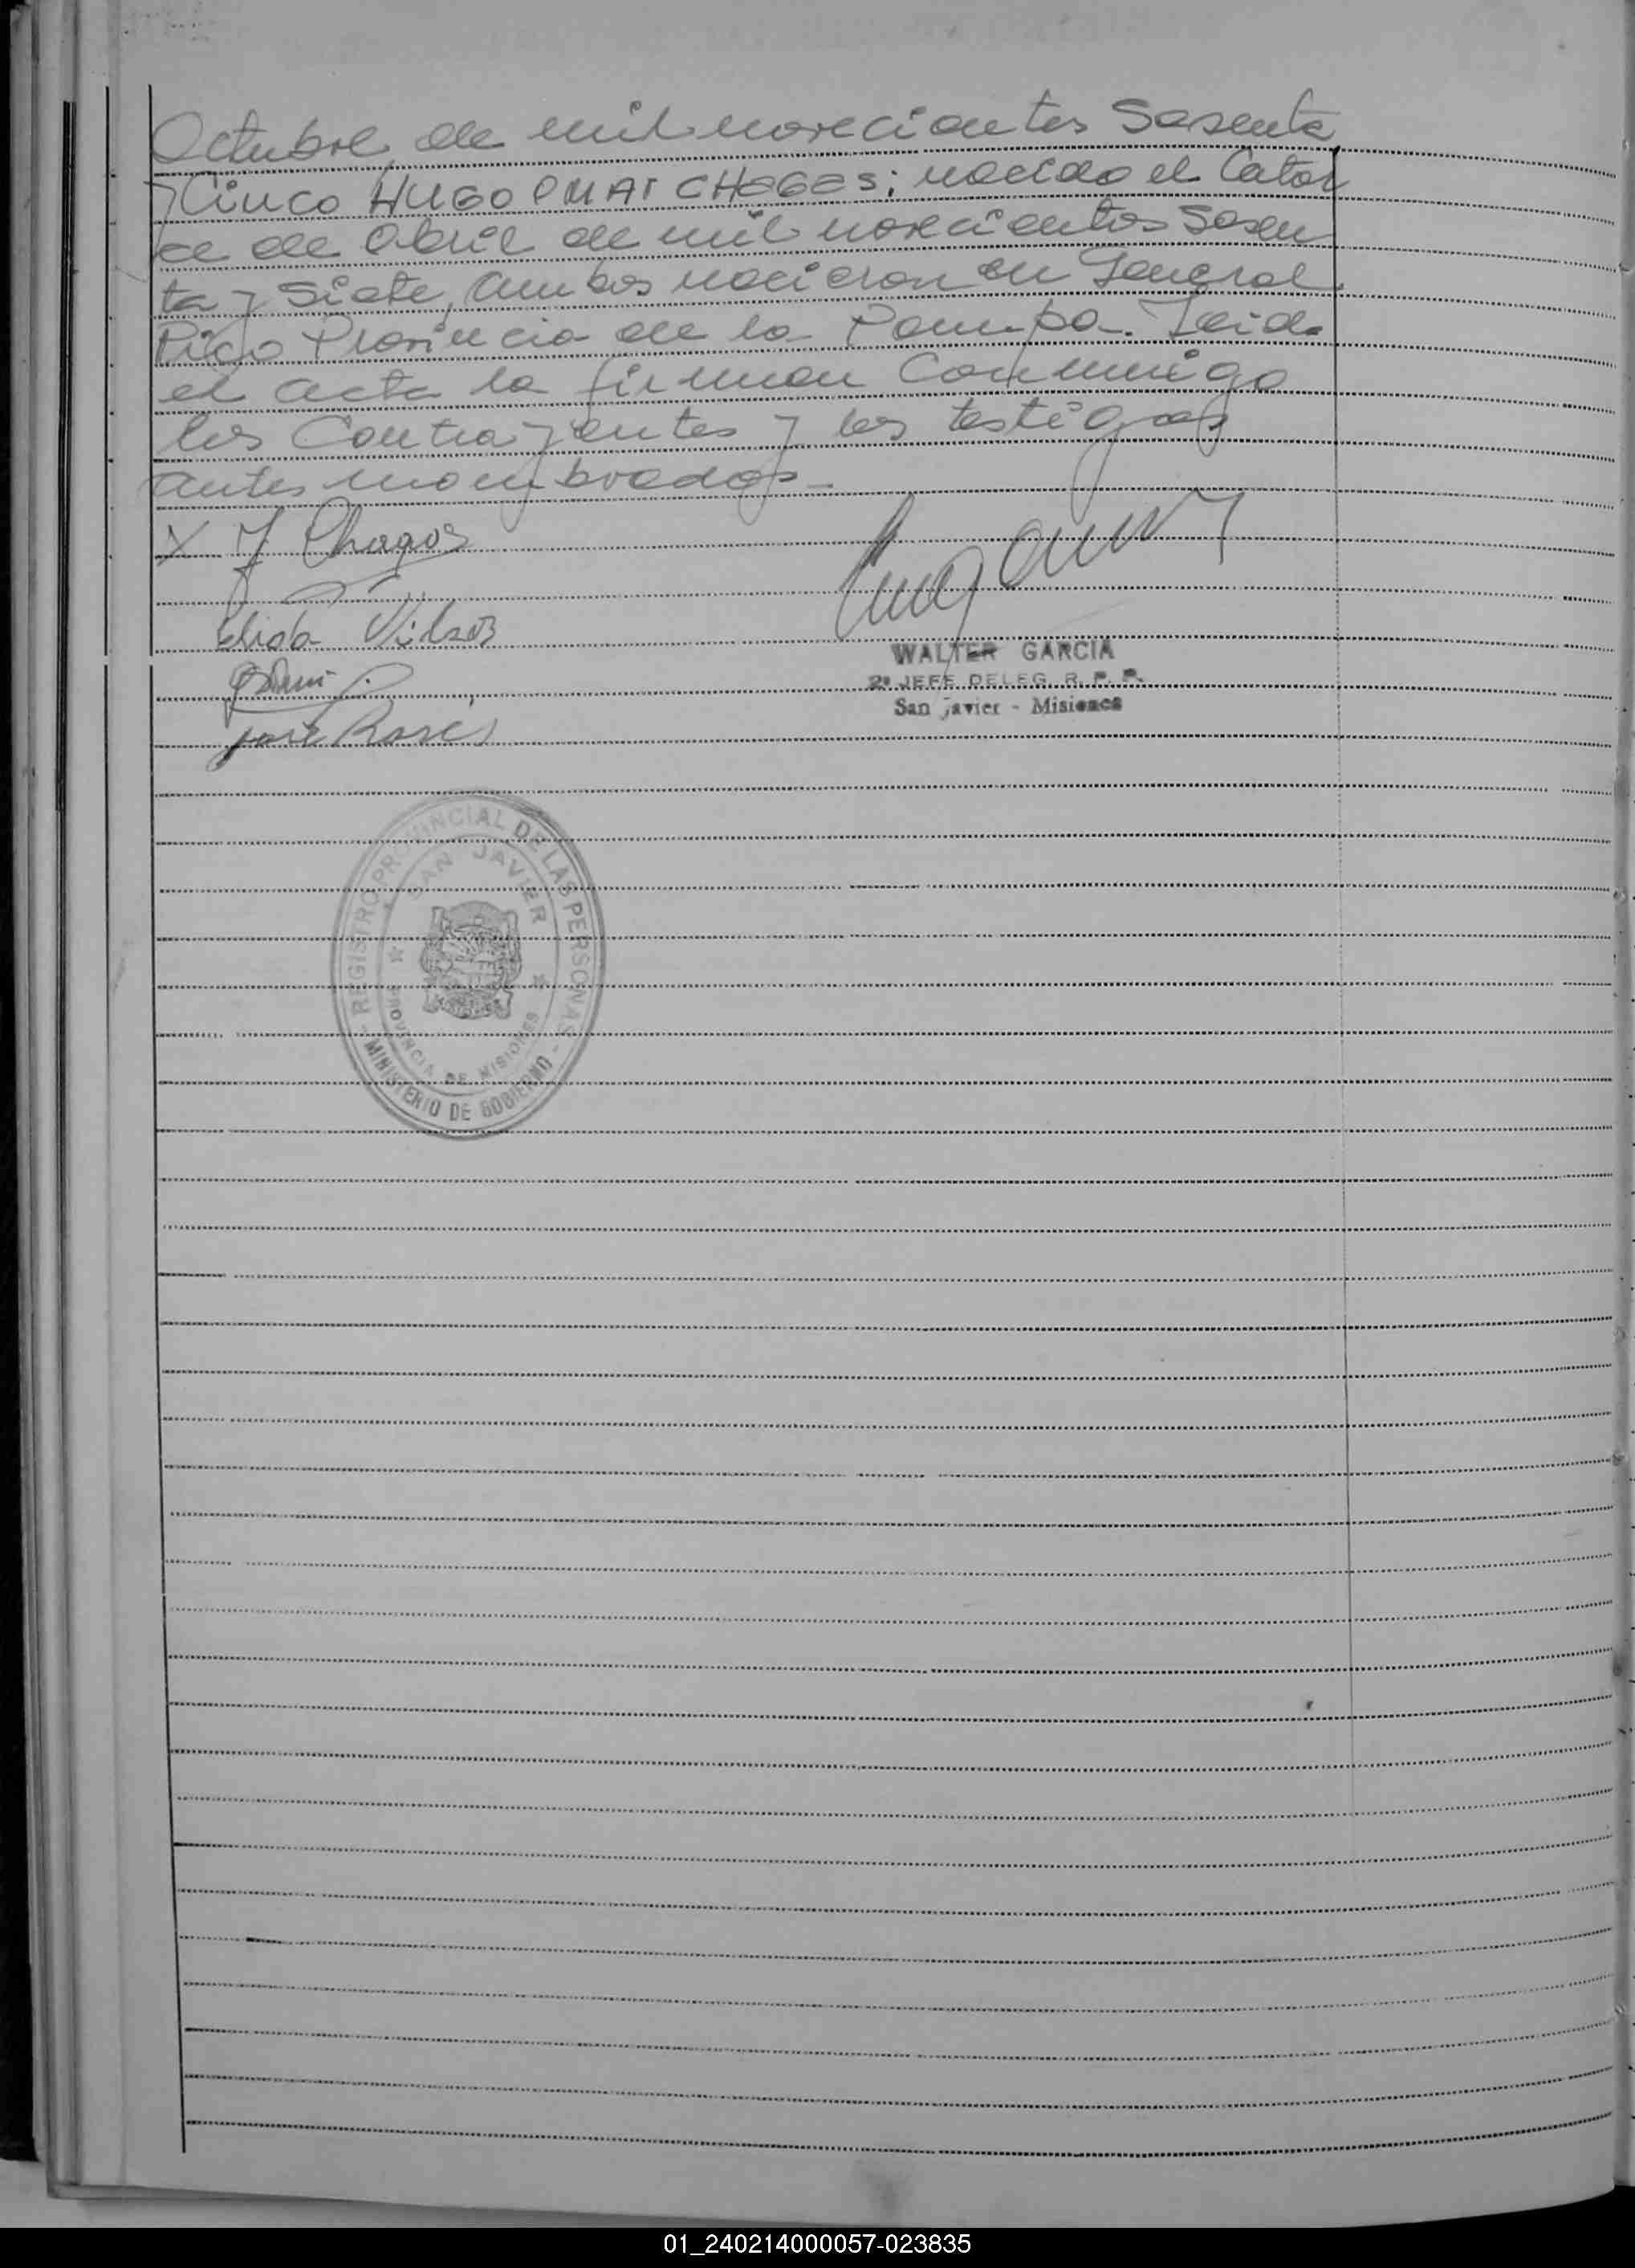 Octubre de mil novecientos Sesenta
y Cinco HUGO OMAR CHAGAS; nacido el Cator
ce de Abril de mil novecientos Sesen
ta y Siete, ambos nacieron en General
Pico Provincia de la Pampa. Leida
el acta la firman Conmmigo
los Contrayentes y los testigos
antes nombrados-
X J Chagas
Elida
WALTER GARCIA
2º JEFE DELEG. R. P. P.
San Javier - Misiones
José
REGISTRO PROVINCIAL DE LAS PERSONAS
SAN JAVIER
PROVINCIA DE MISIONES
- MINISTERIO DE GOBIERNO -
01_240214000057-023835